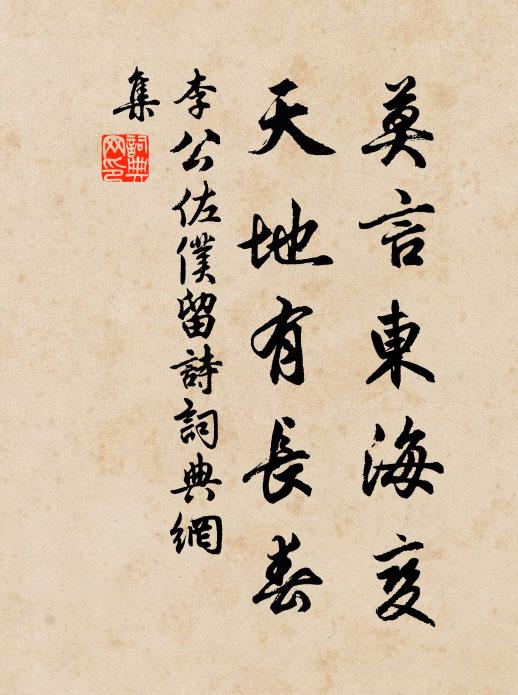 莫言東海変
天地有長春
李公佐僕留詩詞典網
集
詞典
网印